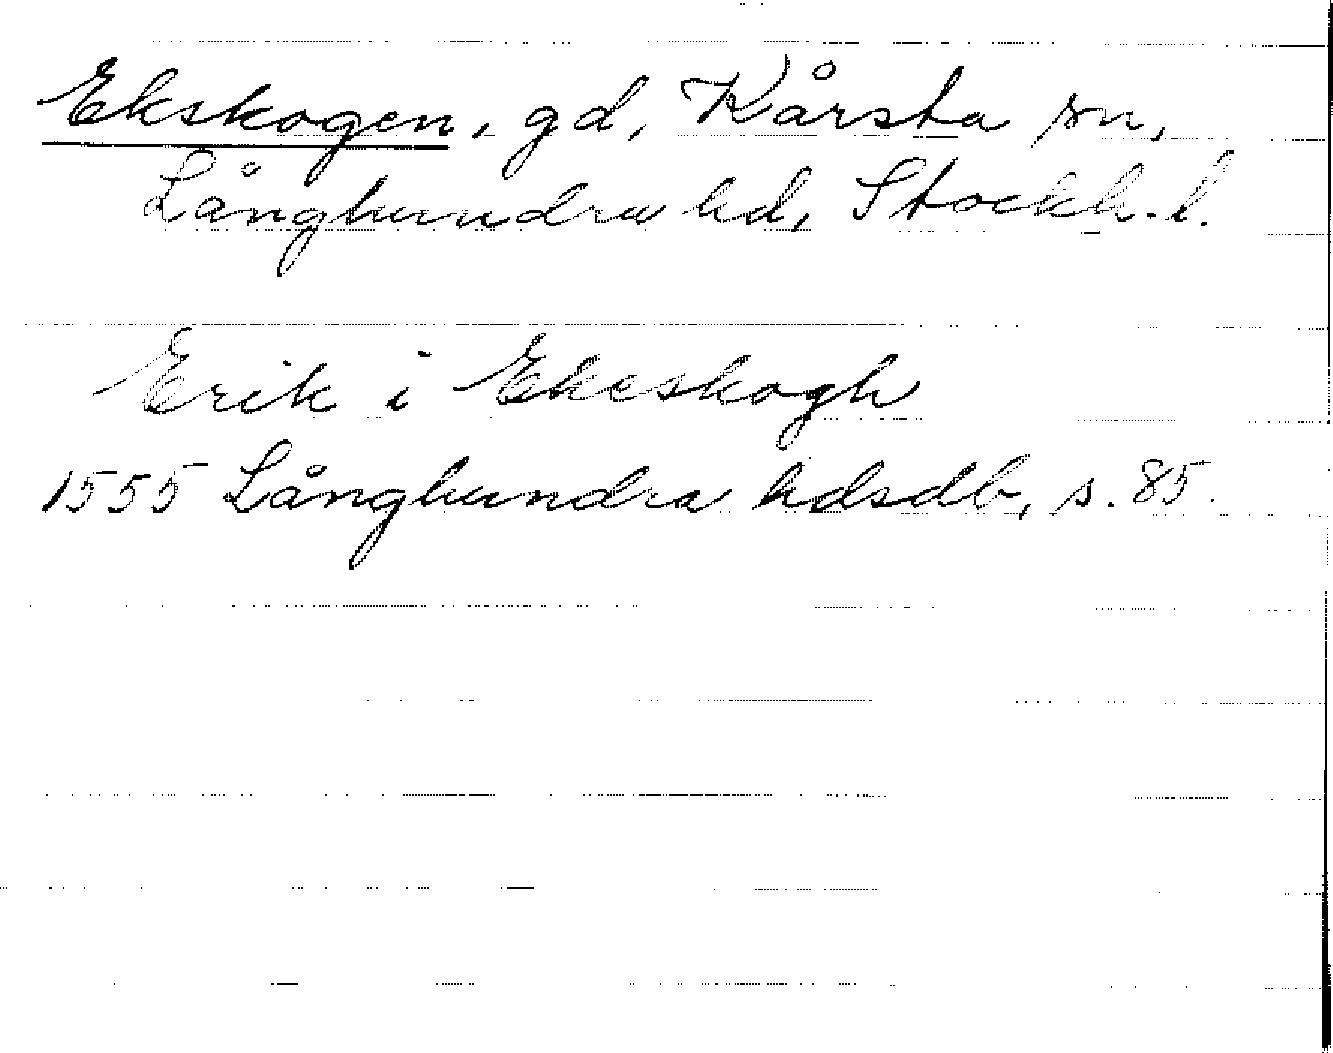 Ekskogen, gd, Kårsta sn,
Långhundra hd, Stockh. l.
Erik i Ekeskogh
1555 Långhundra hdsdb, s. 85.